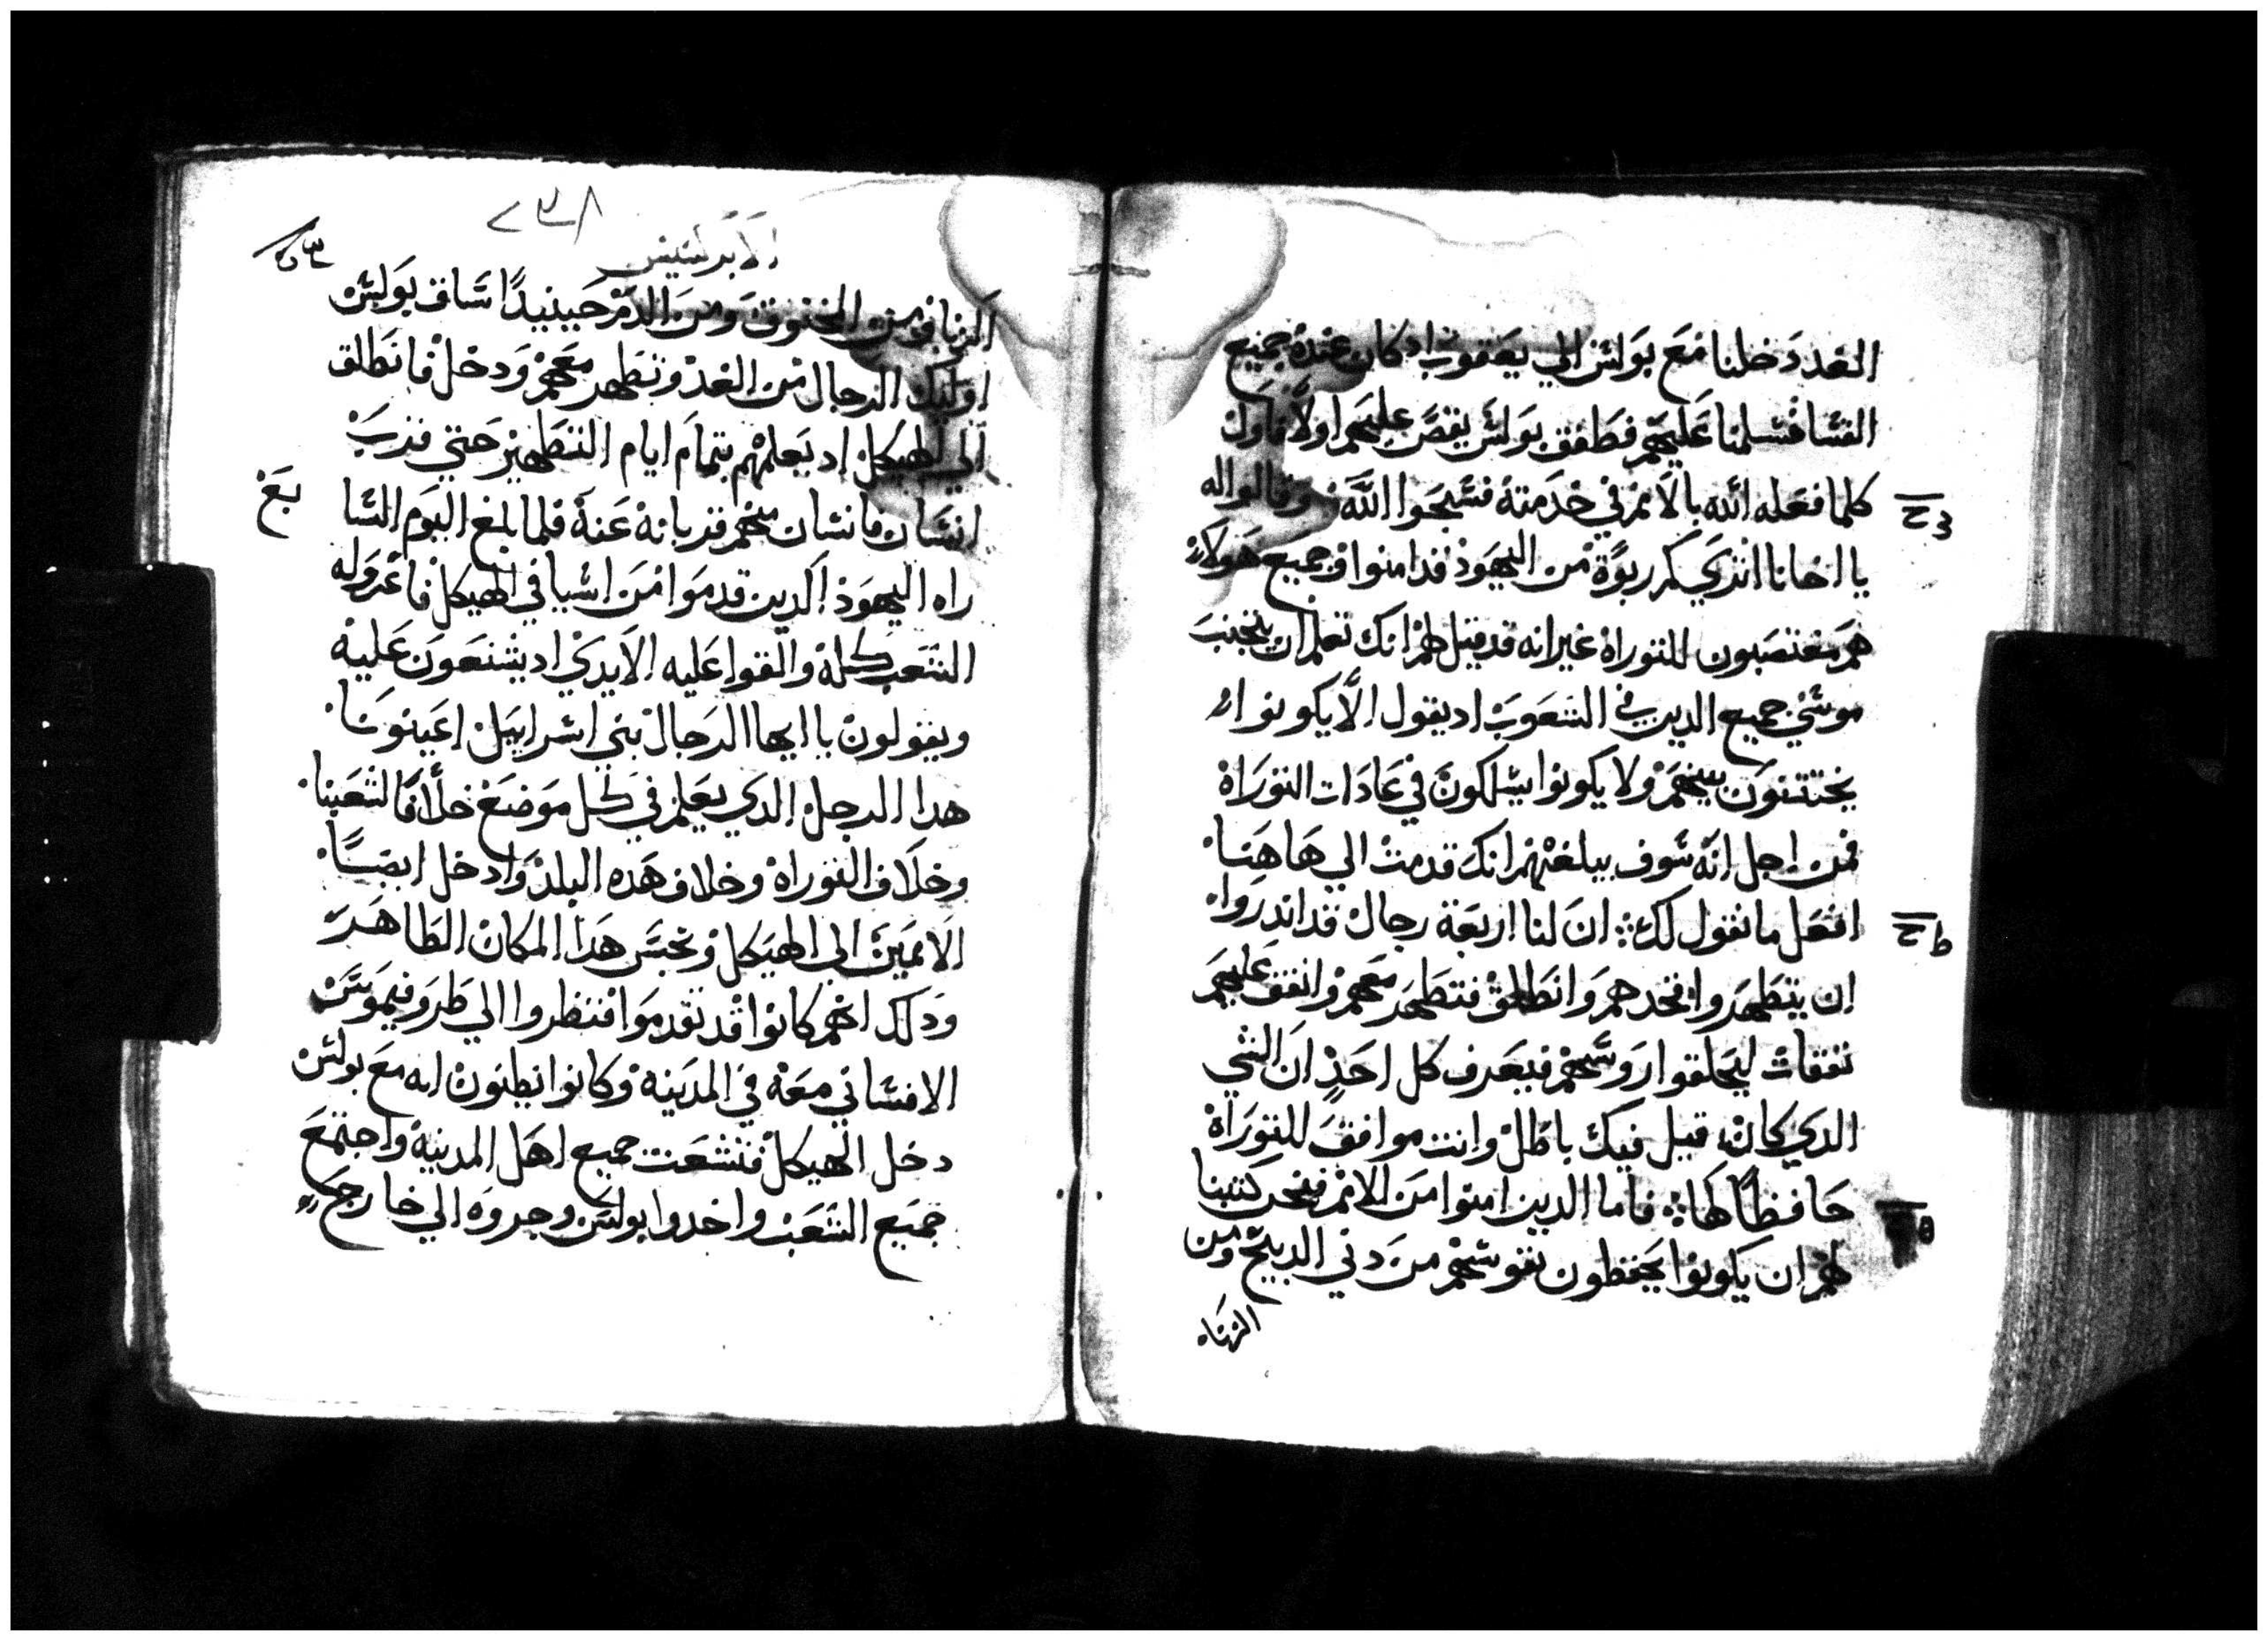 الغد دخلنا مع بولس الي يعقوب اد كان عنده جميع
القسا فسلمنا عليهم فطفق بولس يقص عليهم اولا فاول
كلما فعله الله بالامم في خدمته فسبحوا الله وقالوا له
يا اخانا انت ري كم ربوة من اليهود قد امنوا وجميع هولاء
هم متعصبون للتوراة غير انه قد قيل لهم انك تعلم ان يتجنب
موسي جميع الدين في الشعوب اد يقول الا يكونوا
يختتنون بينهم ولا يكونوا يسلكون في عادات التوراة
فمن اجل انه سوف يبلغهم انك قدمت الي هاهنا
افعل ما نقول لك ان لنا اربعة رجال قد اندروا
ان يتطهروا فخدهم وانطلق فتطهر معهم وانفق عليهم
نفقات ليحلقوا روسهم فيعرف كل احد ان الشي
الدي كان قيل فيك باطل وانت موافق للتوراة
حافظا لها فاما الدين امنوا من الامم فنحن كتبنا
لهم ان يكونوا يحفظون نفوسهم من دني الدبيح ومن
الزناء
٢٣٨
الابركسيس
الزنا ومن المخنوق ومن الدم حينيدا ساق بولس
اوليك الرجال من الغد وتطهر معهم ودخل فانطلق
الي الهيكل اد يعلمهم بتمام ايام التطهير حتي قرب
انسان فانسان منهم قربانه عنه فلما بلغ اليوم السا
بع
راه اليهود الدين قدموا من اسيا في الهيكل فاغروا له
الشعب كله والقوا عليه الايدي اد يشنعون عليه
ويقولون يا ايها الرجال بني اسراييل اعينونا
هدا الرجل الدي يعلم في كل موضع خلافا لشعبنا
وخلاف التوراة وخلاف هده البلد وادخل ايضا
الامميين الي الهيكل ونجس هدا المكان الطاهر
ودلك انهم كانوا قد تقدموا فنظروا الي طروفيموس
الافساني معه في المدينة وكانوا يظنون انه مع بولس
دخل الهيكل فتشعت جميع اهل المدينة واجتمع
جميع الشعب واخدوا بولس وجروه الي خارج